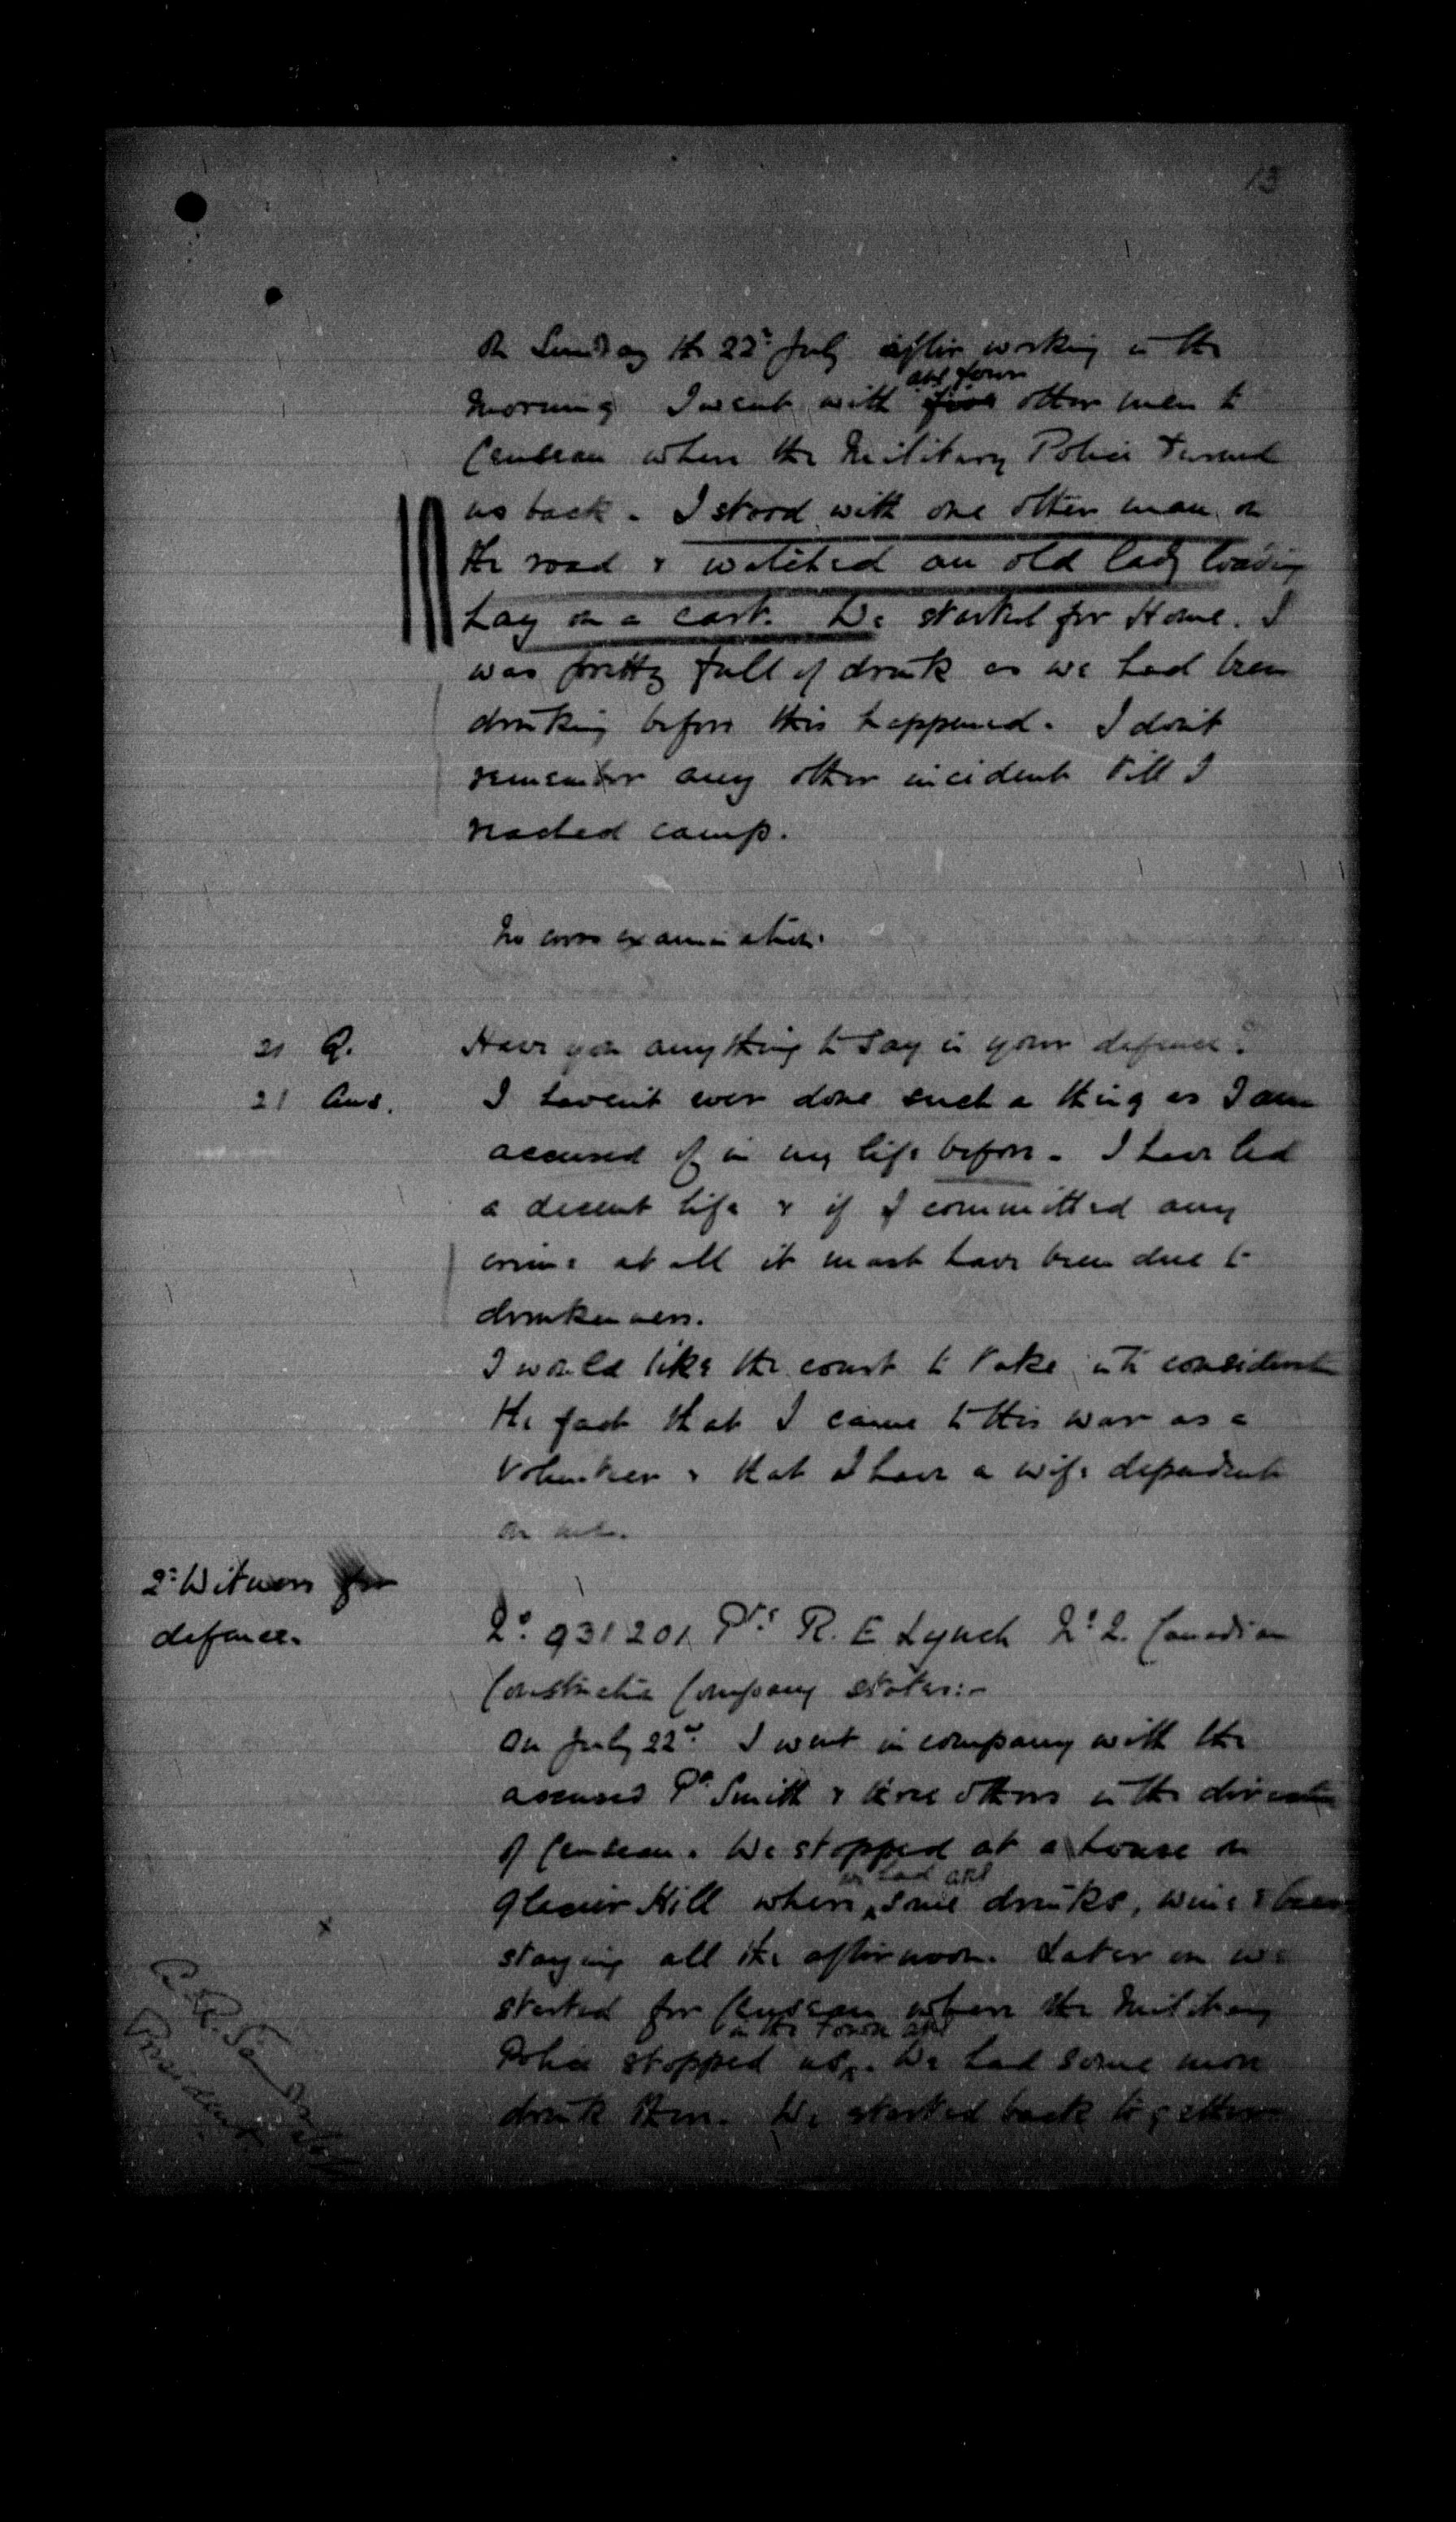 13
On Sunday the 22nd July after working in the
ARS four
morning I went with five other men to
Censeau when the Military Police turned
us back. I stood with one other man on
the road & watched an old lady loading
hay on a cart. We started for Home. I
was pretty full of drink as we had been
drinking before this happened. I don't
remember any other incident till I
reached camp.
No cross examination.
21 Q. Have you anything to say in your defence?
21 Ans. I haven't ever done such a thing as I am
accused of in my life before. I have led
a decent life & if I committed any
crime at all it must have been due to
drunkenness.
I would like the court to take into consideration
the fact that I came to this war as a
Volunteer & that I have a wife dependent
on me.
2nd Witness for
defence.
No 931201 Pte R. E Lynch No 2. Canadian
Construction Company states:-
On July 22nd I went in company with the
accused Pte Smith & three others in the direction
of Censeau. We stopped at a house on
we had ARS
Glacier Hill where some drinks, wine & beer
staying all the afternoon. Later on we
started for Censeau where the Military
in the town ARS
Police stopped us. We had some more
drink then. We started back together
President